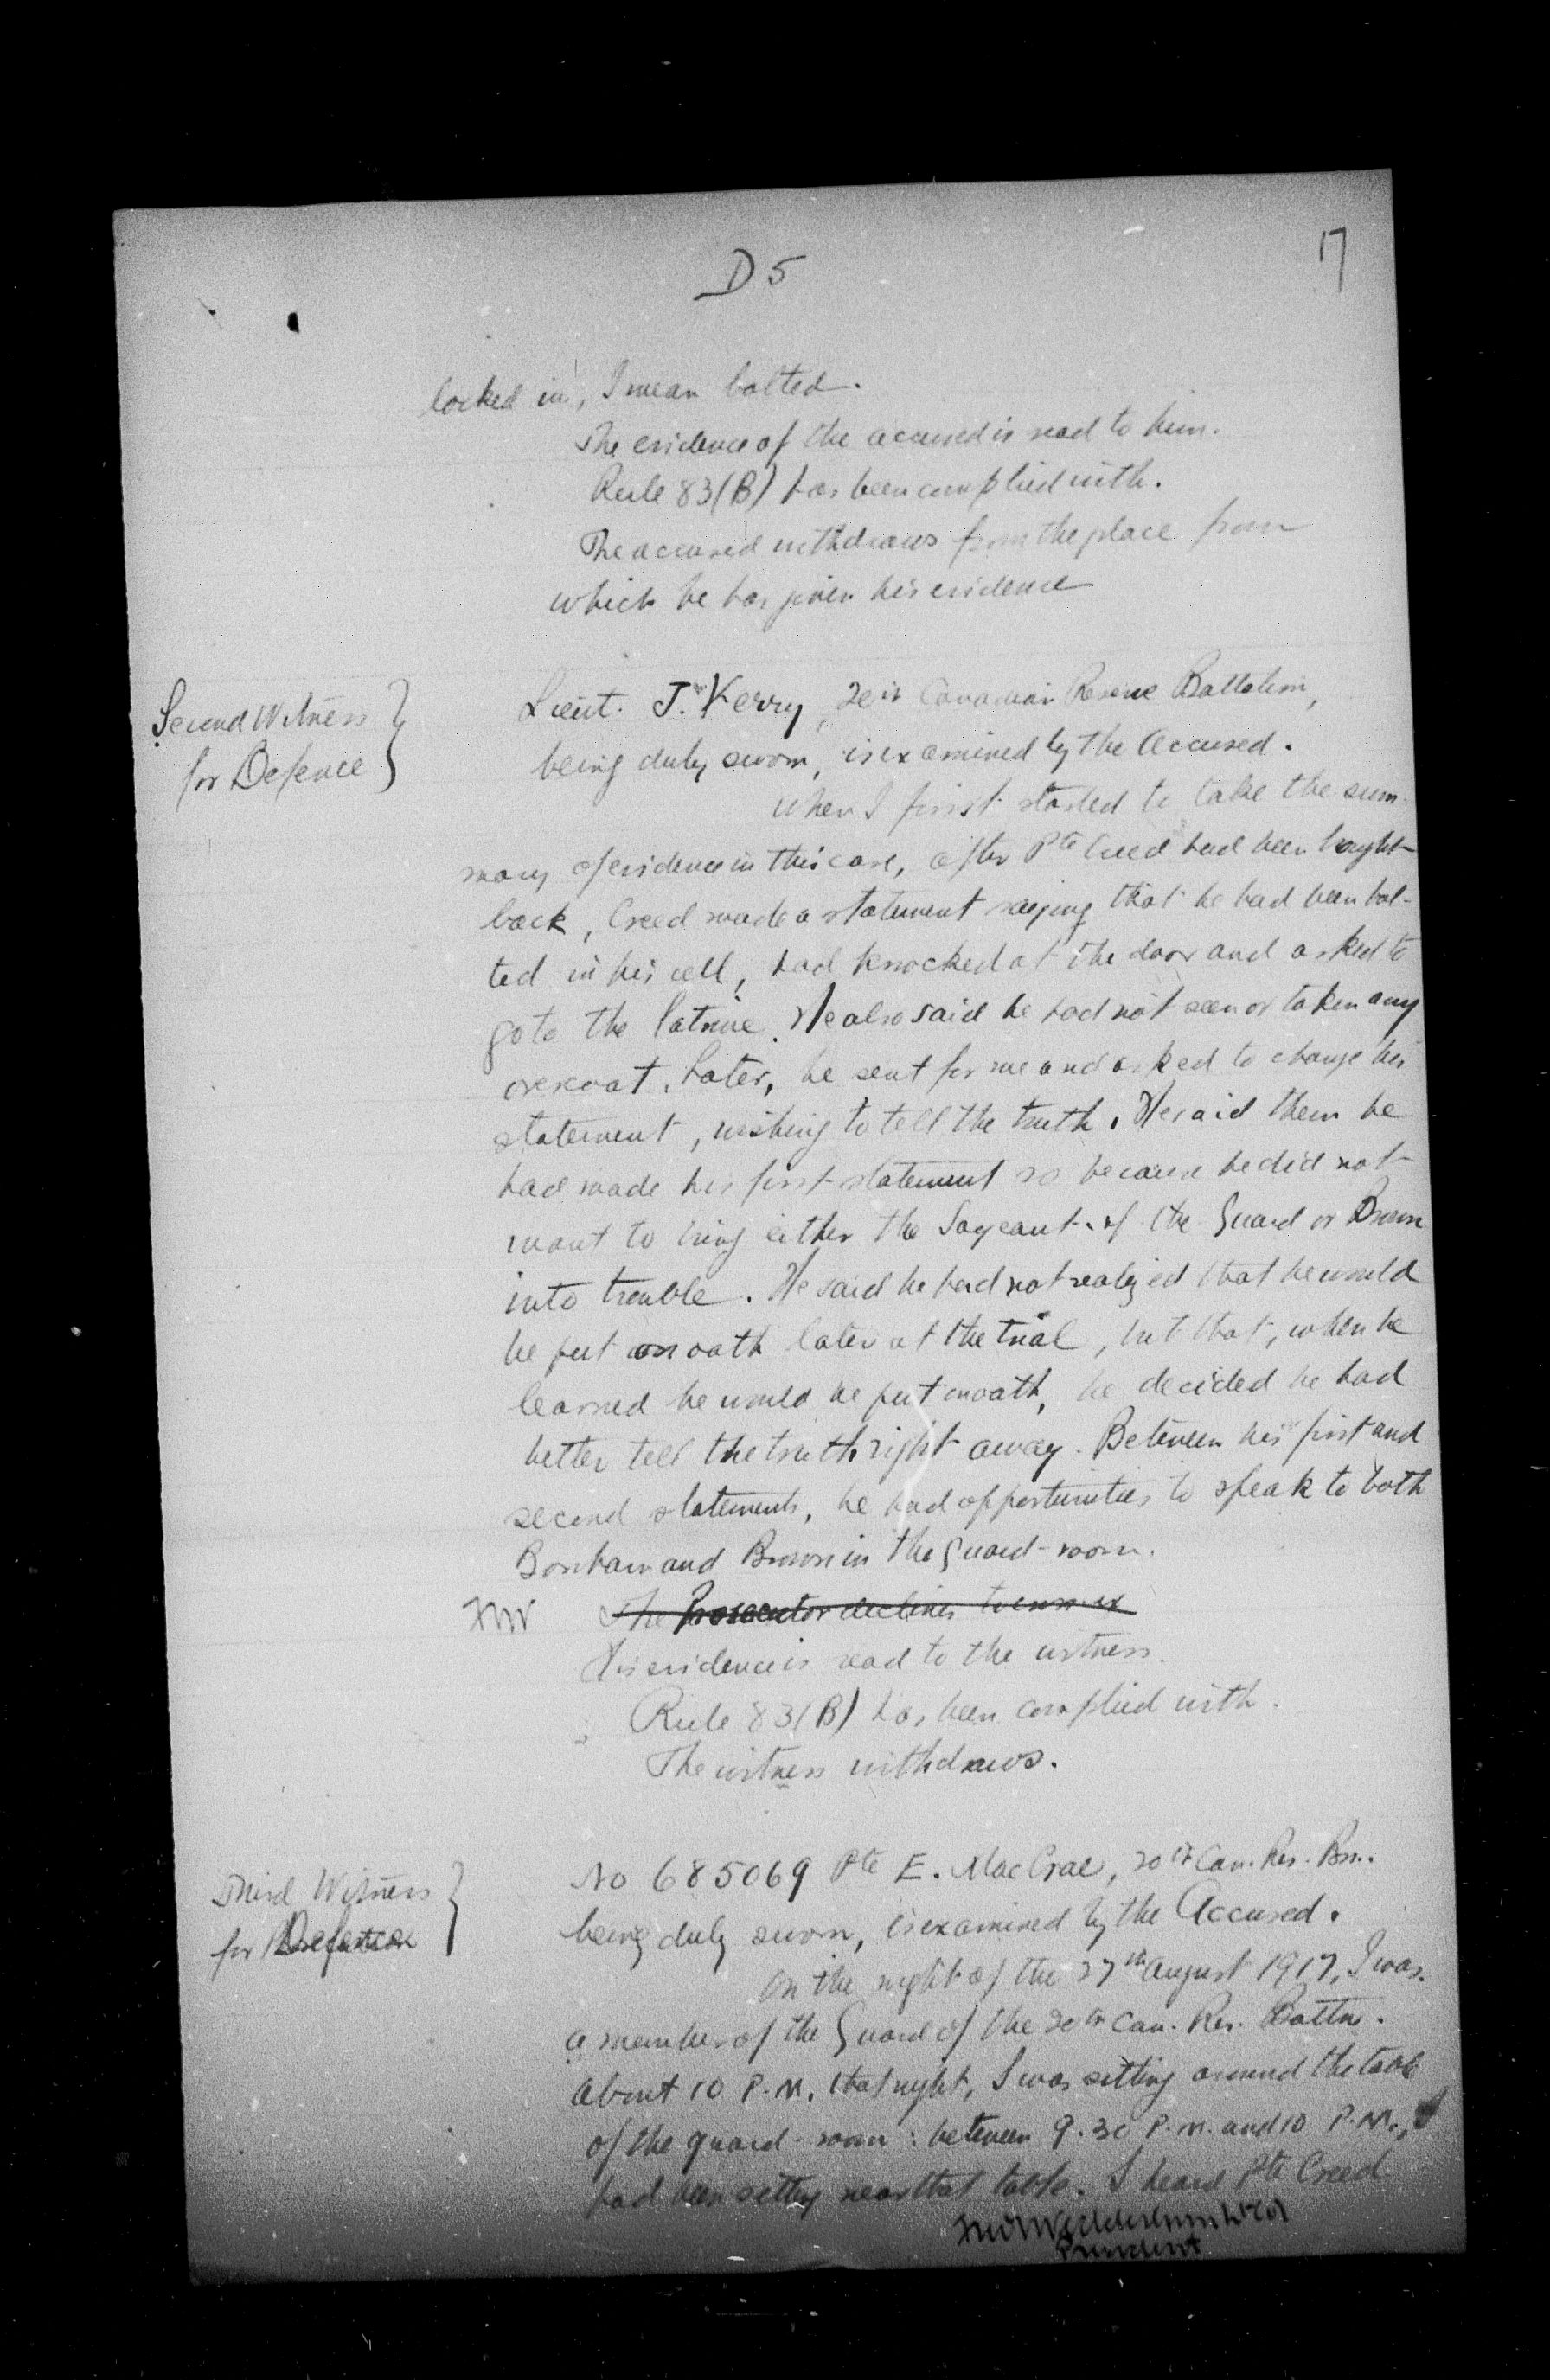 D 5
17
locked in, I mean bolted.
The evidence of the accused is read to him.
Rule 83(B) has been complied with.
The accused withdraws from the place from
which he has given his evidence
Second Witness
for Defence
Lieut. J. Kerry, 20th Canadian Reserve Battalion,
being duly sworn, is examined by the Accused.
When I first started to take the sum-
mary of evidence in this case, after Pte Creed had been brought
back, Creed made a statement saying that he had been bol-
ted in his cell, had knocked at the door and asked to
go to the latrine. He also said he had not seen or taken any
overcoat. Later, he sent for me and asked to change his
statement, wishing to tell the truth. He said then he
had made his first statement so because he did not
want to bring either the Sergeant of the Guard or Brown
into trouble. He said he had not realized that he would
be put on oath later at the trial, but that, when he
learned he would be put on oath, he decided he had
better tell the truth right away. Between his first and
second statements, he had opportunities to speak to both
and Brown in the guard-room.
The Prosecutor declines to cross ex
His evidence is read to the witness.
Rule 83(B) has been complied with.
The witness withdraws.
Third Witness
for Defence
No 685069 Pte E. MacCrae, 20th Can. Res. Bn.
being duly sworn, is examined by the Accused.
On the night of the 27th August 1917, I was
a member of the Guard of the 20th Can. Res. Battn.
About 10 P.M. that night, I was sitting around the table
of the guard-room: between 9.30 P.M. and 10 P.M., I
had been sitting near that table. I heard Pte Creed
President